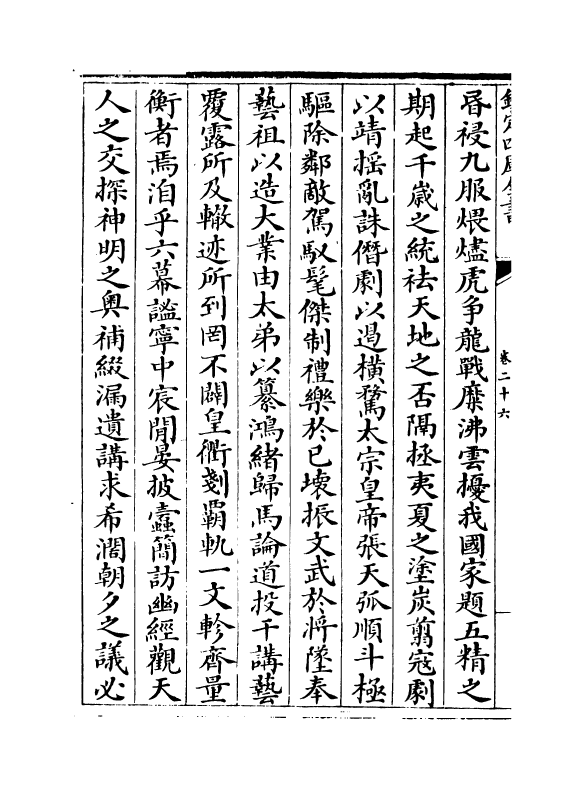 欽定四庫全書
卷二十六
昏祲九服煨燼虎争龍戰糜沸雲擾我國家題五精之
期起千歳之統祛天地之否隔拯夷夏之塗炭翦寇劇
以靖揺亂誅僭劇以遏横騖太宗皇帝張天弧順斗極
驅除鄰敵駕馭髦傑制禮樂於已壊振文武於將墜奉
藝祖以造大業由太弟以纂鴻緒歸馬論道投干講藝
覆露所及轍迹所到罔不闢皇衢剗覇軌一文軫齊量
衡者焉洎乎六幕謐寧中宸閒晏披蠧簡訪幽經觀天
人之交探神明之奥補綴漏遺講求希濶朝夕之議必